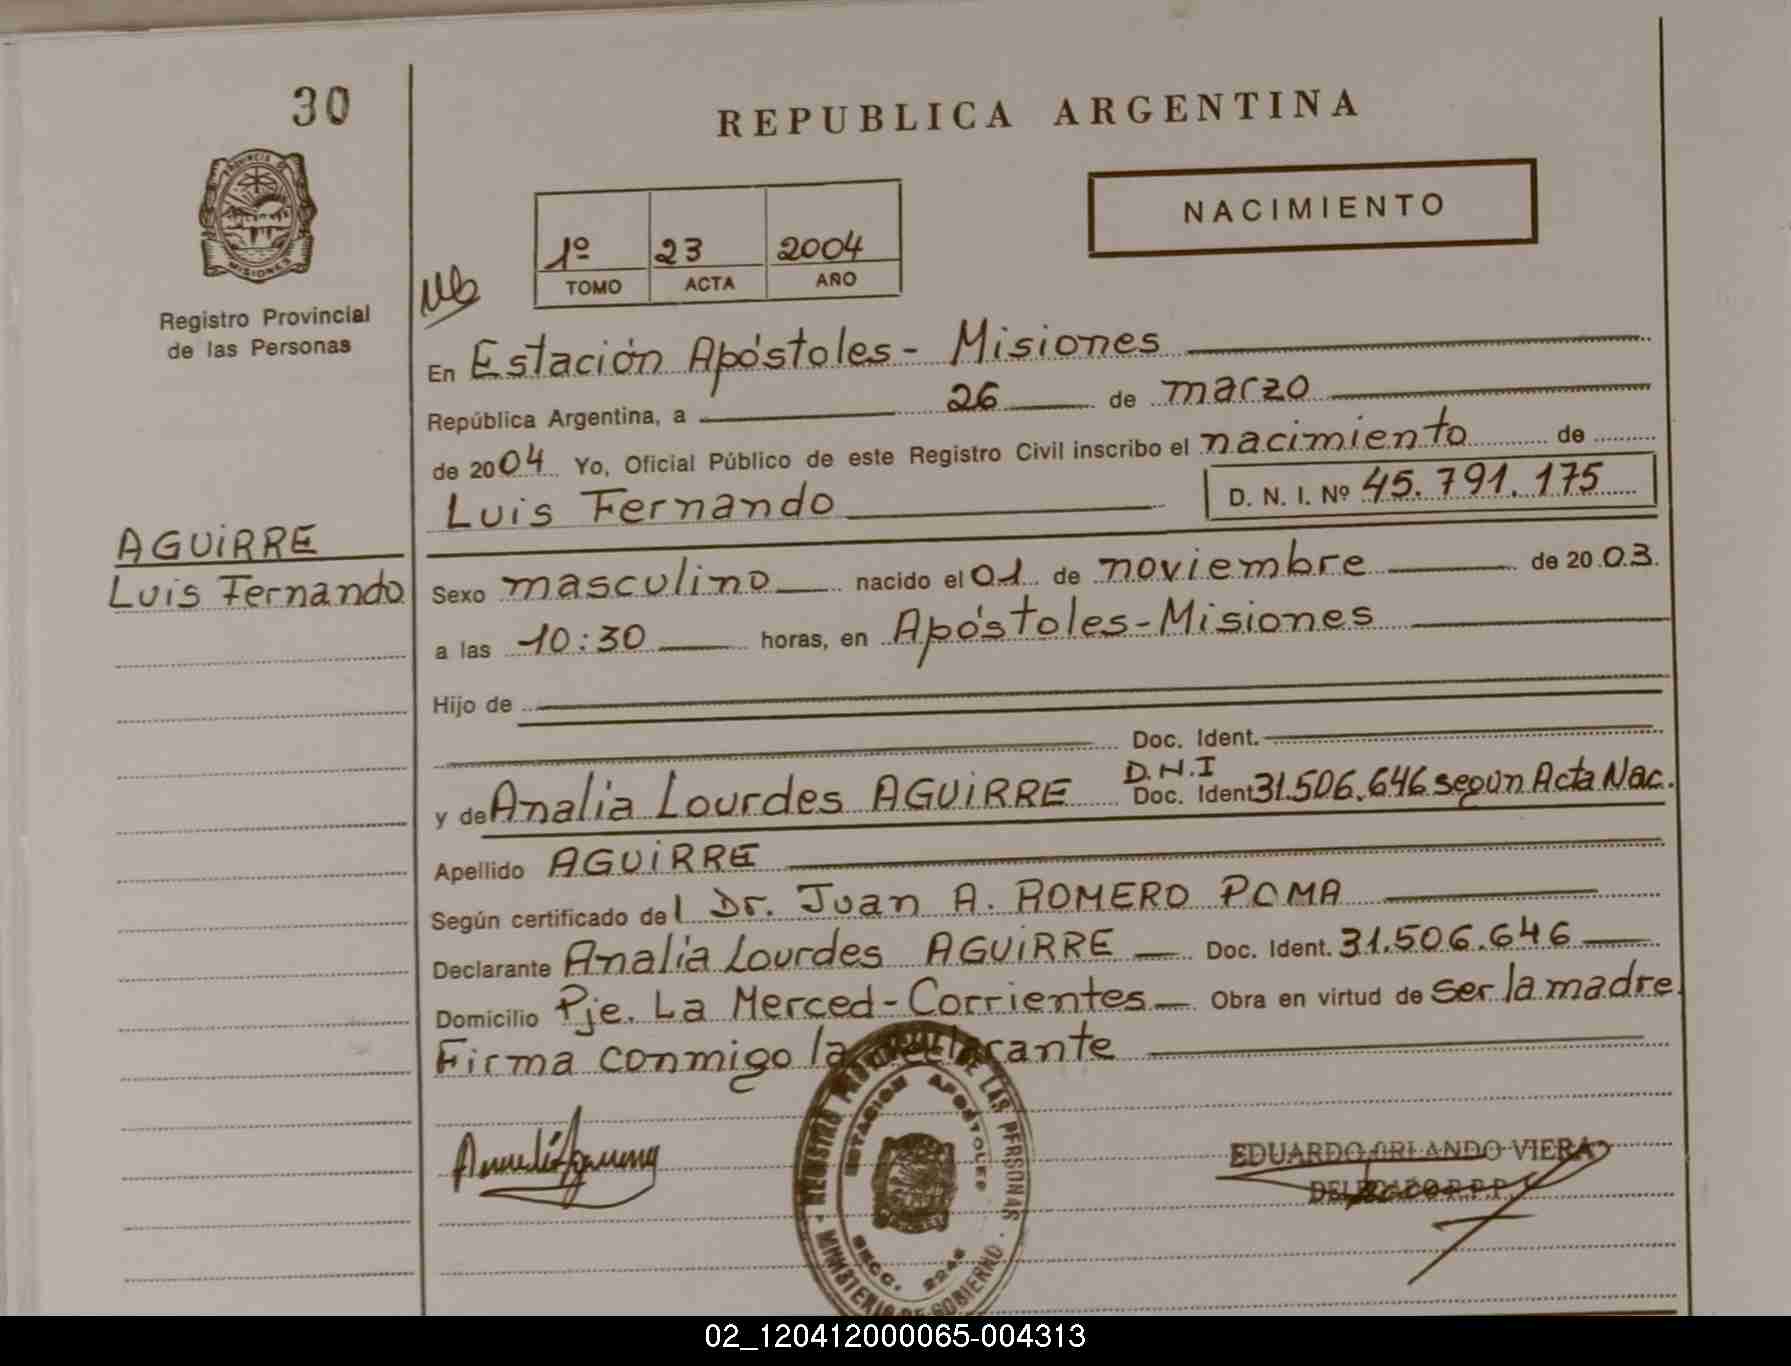 30
REPUBLICA ARGENTINA
NACIMIENTO
PROVINCIA DE
MISIONES
Registro Provincial
de las Personas
1º 23 2004
TOMO ACTA AÑO
En Estación Apóstoles - Misiones
República Argentina, a 26 de marzo
de 2004 Yo, Oficial Público de este Registro Civil inscribo el nacimiento de
Luis Fernando D. N. I. Nº 45.791.175
AGUiRRE
Luis Fernando
Sexo masculino nacido el 01 de noviembre de 2003.
a las 10:30 horas, en Apóstoles - Misiones
Hijo de
Doc. Ident.
y de Analia Lourdes AGUiRRE D.N.I Doc. Ident 31.506.646 según Acta Nac.
Apellido AGUiRRE
Según certificado del Dr. Juan A. ROMERO POMA
Declarante Analia Lourdes AGUiRRE Doc. Ident. 31.506.646
Domicilio Pje. La Merced - Corrientes Obra en virtud de ser la madre.
Firma conmigo la declarante
REGISTRO PROVINCIAL DE LAS PERSONAS
ESTACION APOSTOLES
SECC. 2246
MINISTERIO DE GOBIERNO
EDUARDO ORLANDO VIERA
DELEGADO R.P.P.
02_120412000065-004313